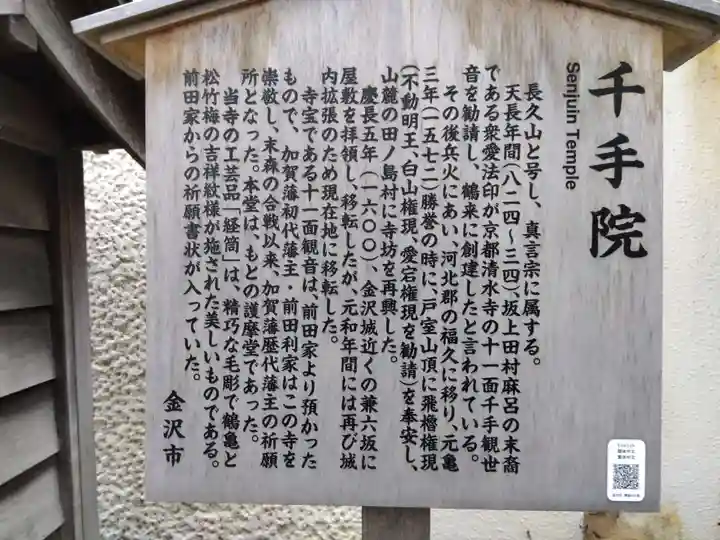 千手院
Senjuin Temple
長久山と号し、真言宗に属する。
天長年間(八二四~三四)、坂上田村麻呂の末裔
である衆愛法印が京都清水寺の十一面千手観世
音を勧請し、鶴来に創建したと言われている。
その後兵火にあい、河北郡の福久に移り、元亀
三年(一五七二)勝誉の時に、戸室山頂に飛櫓権現
(不動明王、白山権現、愛宕権現を勧請)を奉安し、
山麓の田ノ島村に寺坊を再興した。
慶長五年(一六〇〇)、金沢城近くの兼六坂に
屋敷を拝領し、移転したが、元和年間には再び城
内拡張のため現在地に移転した。
寺宝である十一面観音は、前田家より預かった
もので、加賀藩初代藩主・前田利家はこの寺を
崇敬し、末森の合戦以来、加賀藩歴代藩主の祈願
所となった。本堂は、もとの護摩堂であった。
当寺の工芸品「経筒」は、精巧な毛彫で鶴亀と
松竹梅の吉祥紋様が施された美しいものである。
前田家からの祈願書状が入っていた。
金沢市
English